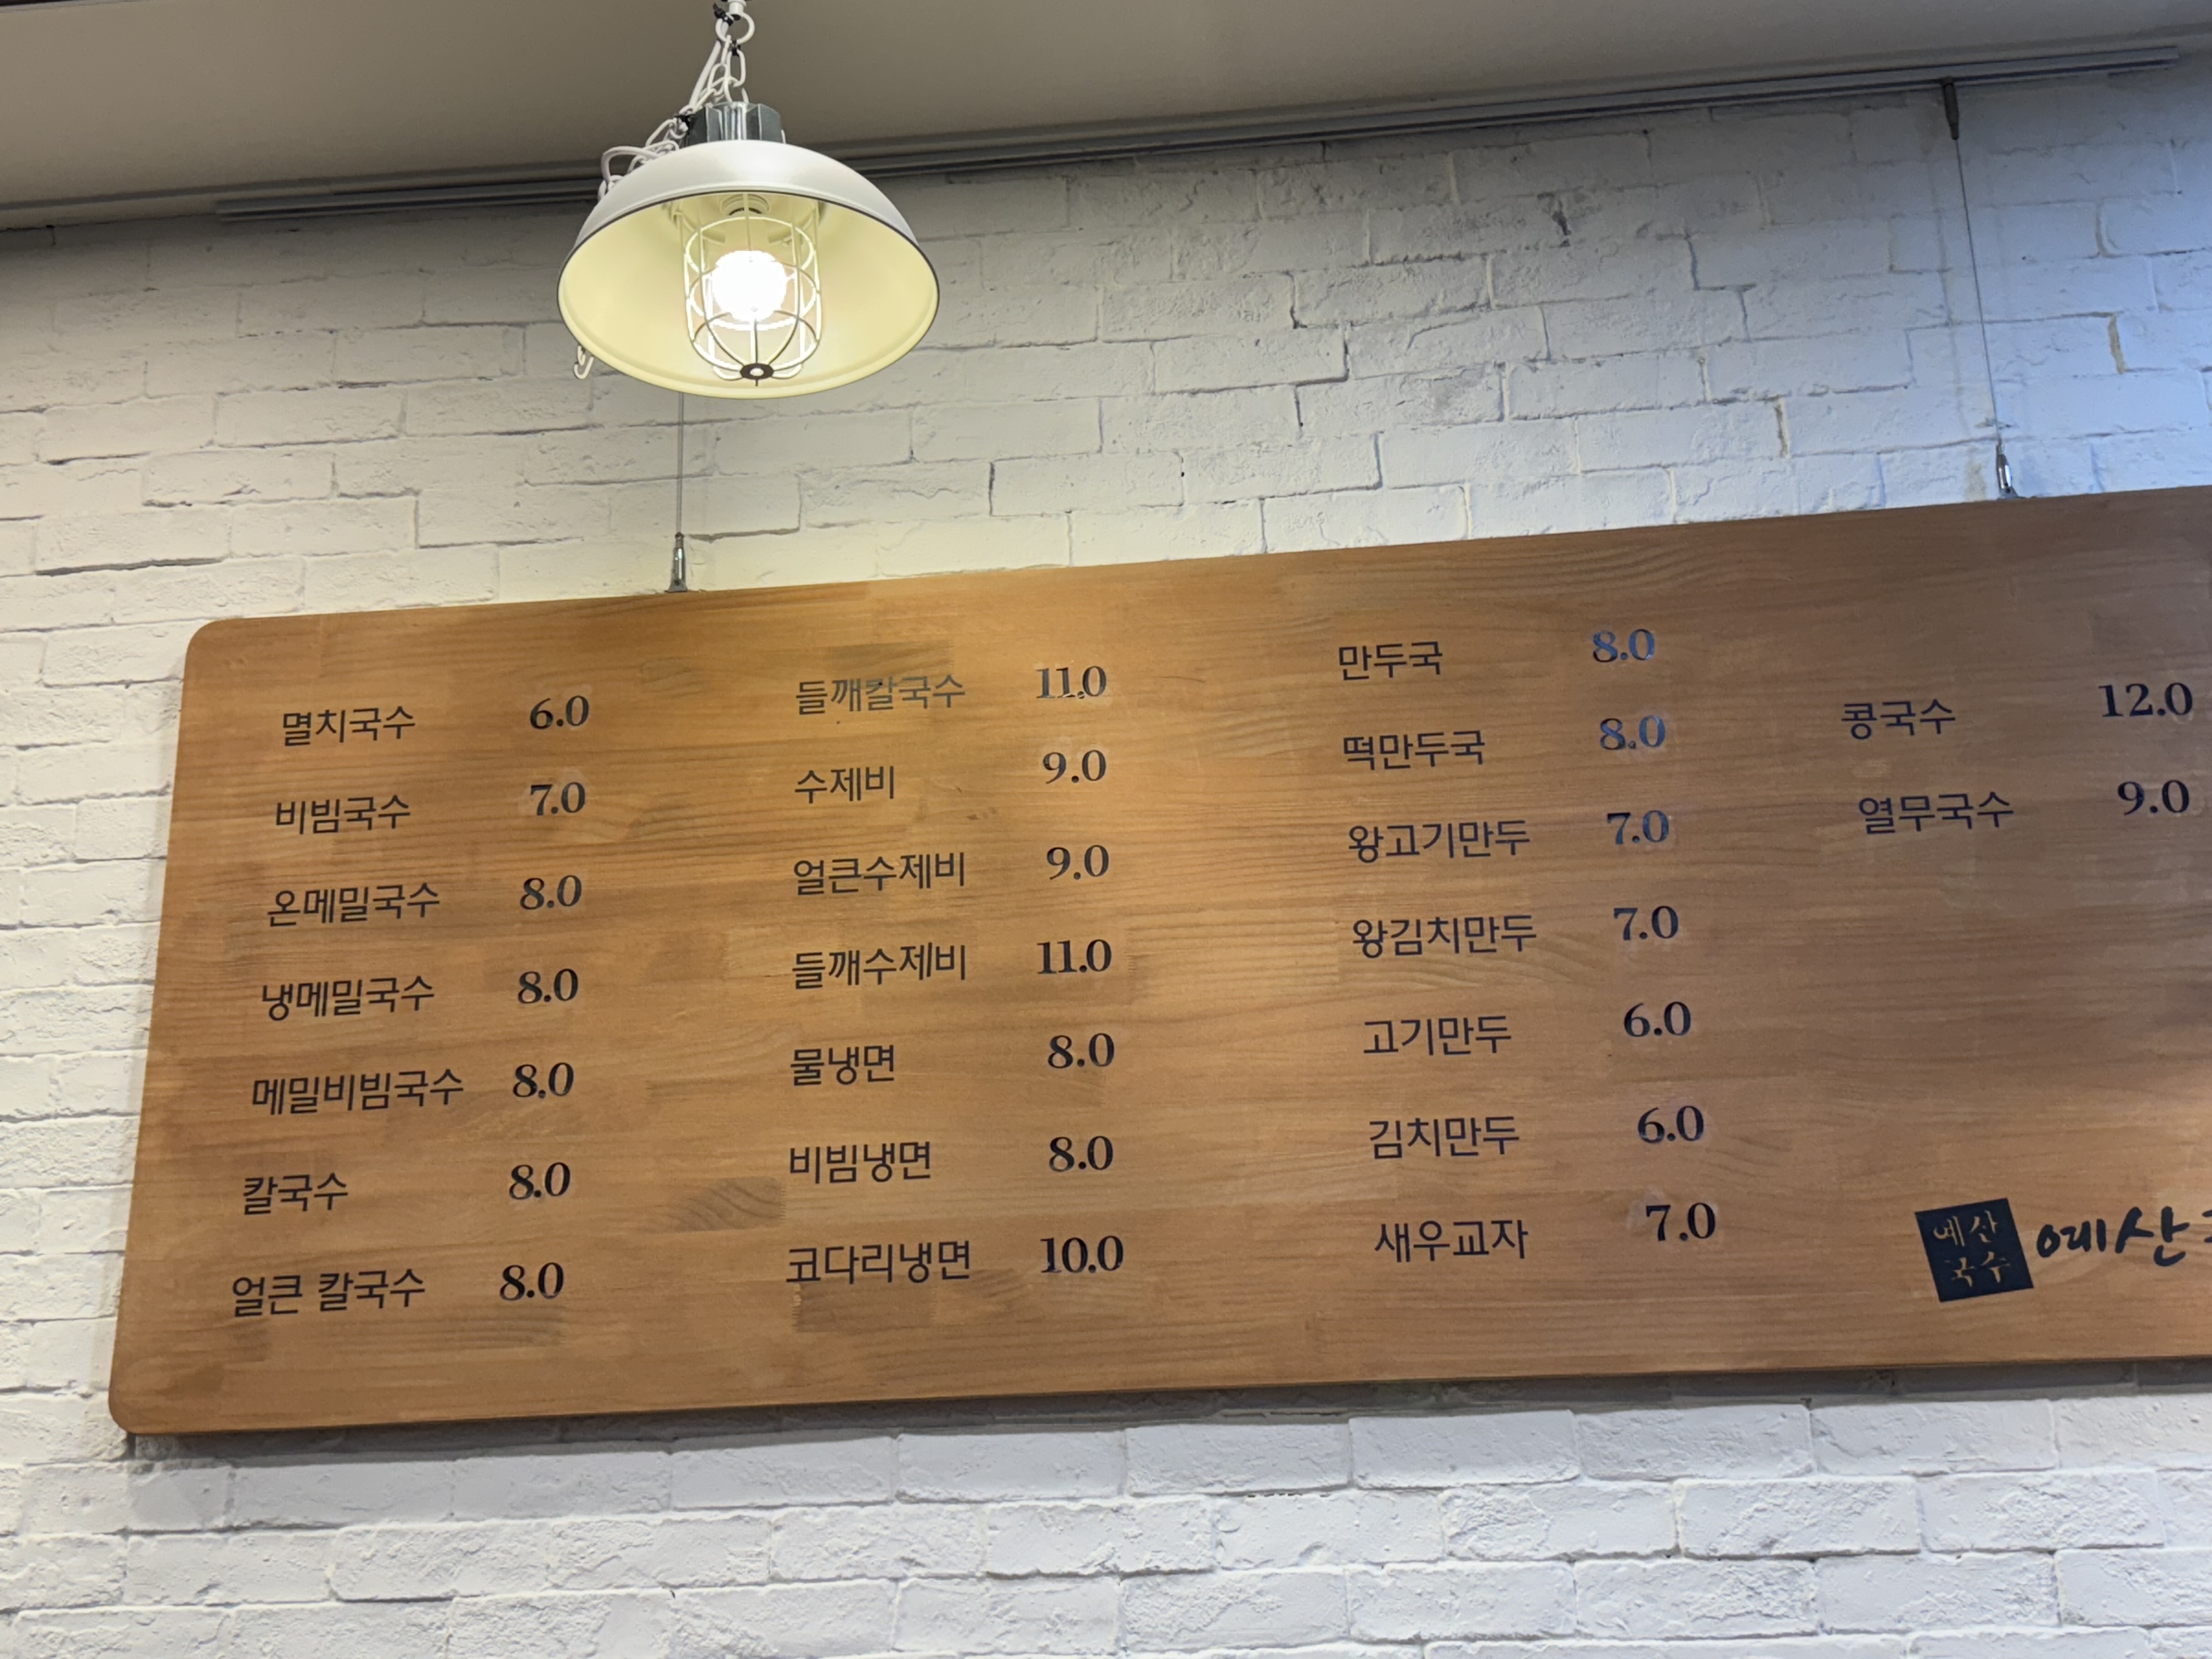 멸치국수 6.0
비빔국수 7.0
온메밀국수 8.0
냉메밀국수 8.0
메밀비빔국수 8.0
칼국수 8.0
얼큰 칼국수 8.0
들깨칼국수 11.0
수제비 9.0
얼큰수제비 9.0
들깨수제비 11.0
물냉면 8.0
비빔냉면 8.0
코다리냉면 10.0
만두국 8.0
떡만두국 8.0
왕고기만두 7.0
왕김치만두 7.0
고기만두 6.0
김치만두 6.0
새우교자 7.0
콩국수 12.0
열무국수 9.0
예산
국수
예산